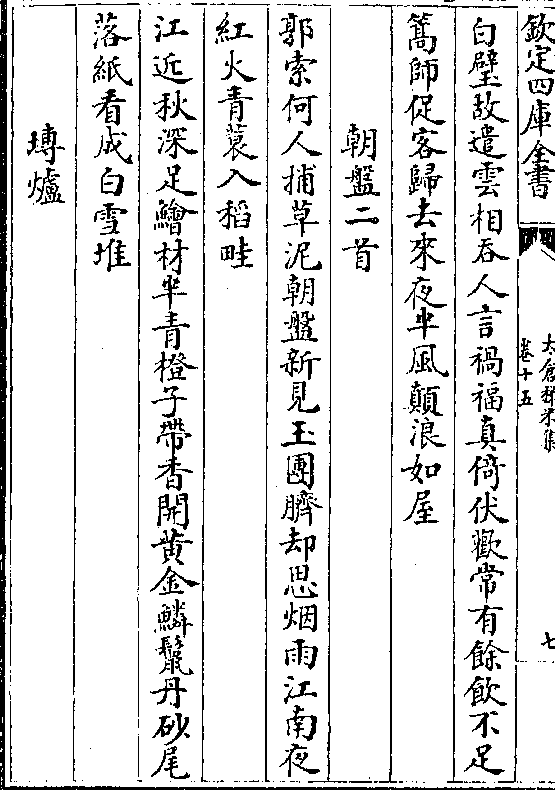 欽定四庫全書
太倉稊米集
卷十五
七
白璧故遣雲相吞人言禍福真倚伏歡常有餘飲不足
篙師促客歸去來夜半風顛浪如屋
朝盤二首
郭索何人捕草泥朝盤新見玉團臍却思烟雨江南夜
紅火青蓑入稻畦
江近秋深足鱠材半青橙子帶香開黄金鱗鬛丹砂尾
落紙看成白雪堆
塼爐